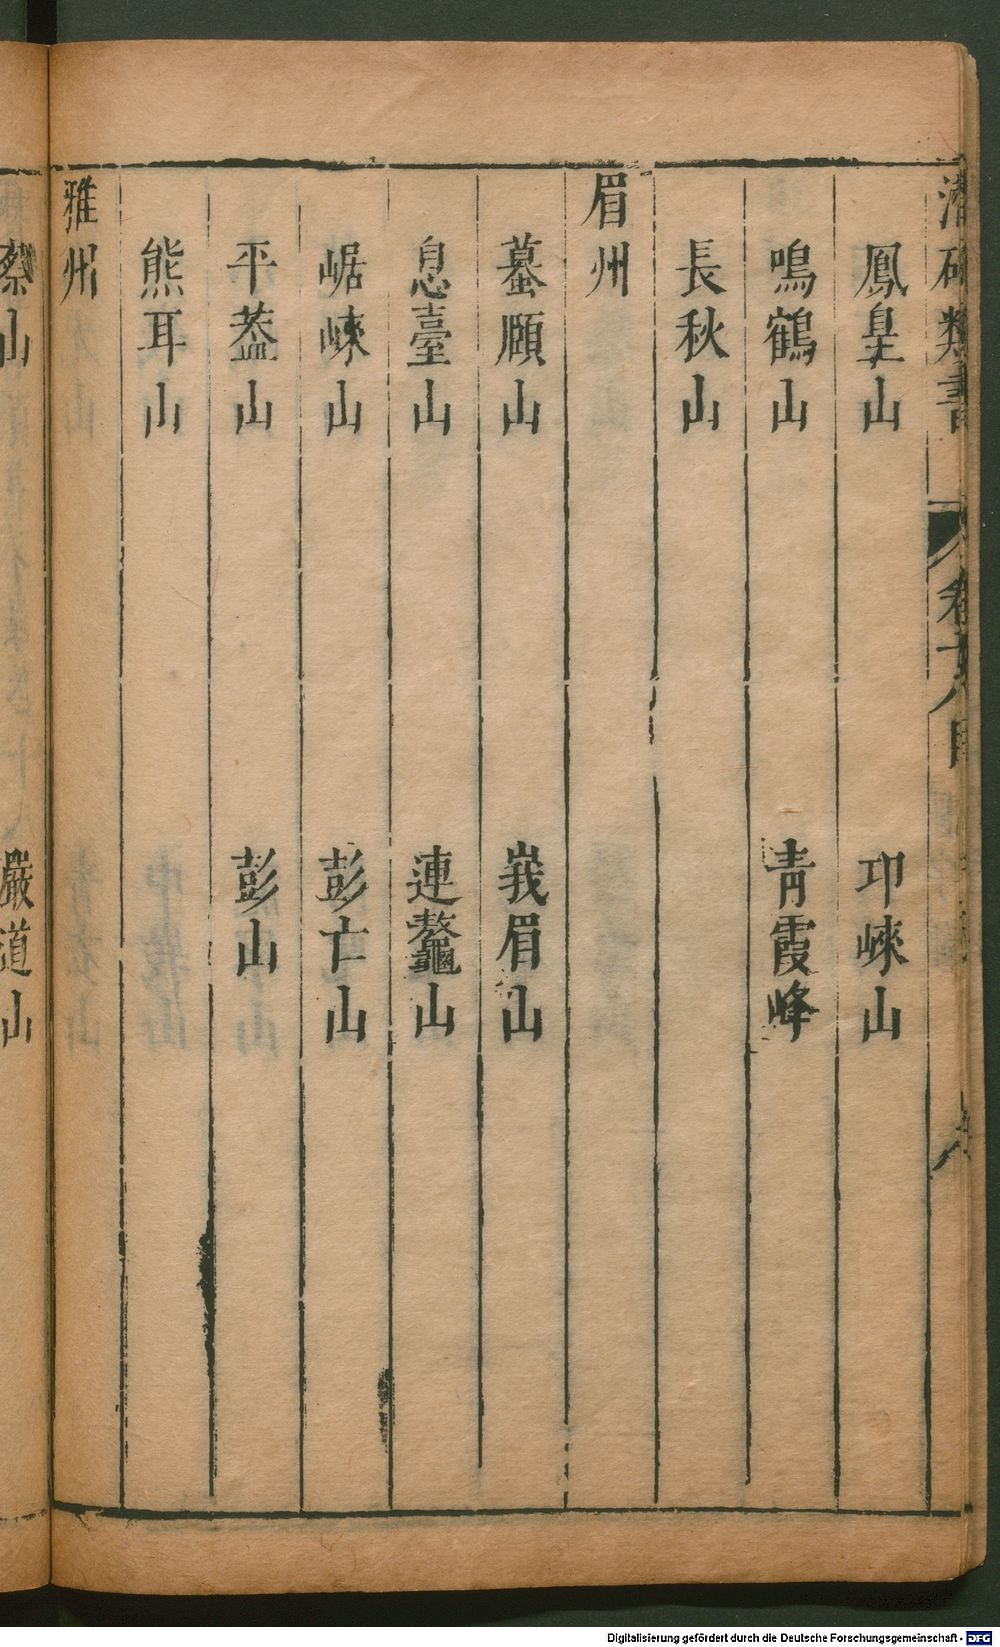 潛確類書 卷十八目
鳳皇山 邛崍山
鳴鶴山 青霞峰
長秋山
眉州
蟇頤山 峩眉山
息臺山 連鼇山
崌崍山 彭亡山
平葢山 彭山
熊耳山
雅州
蔡山 嚴道山
Digitalisierung gefördert durch die Deutsche Forschungsgemeinschaft - DFG